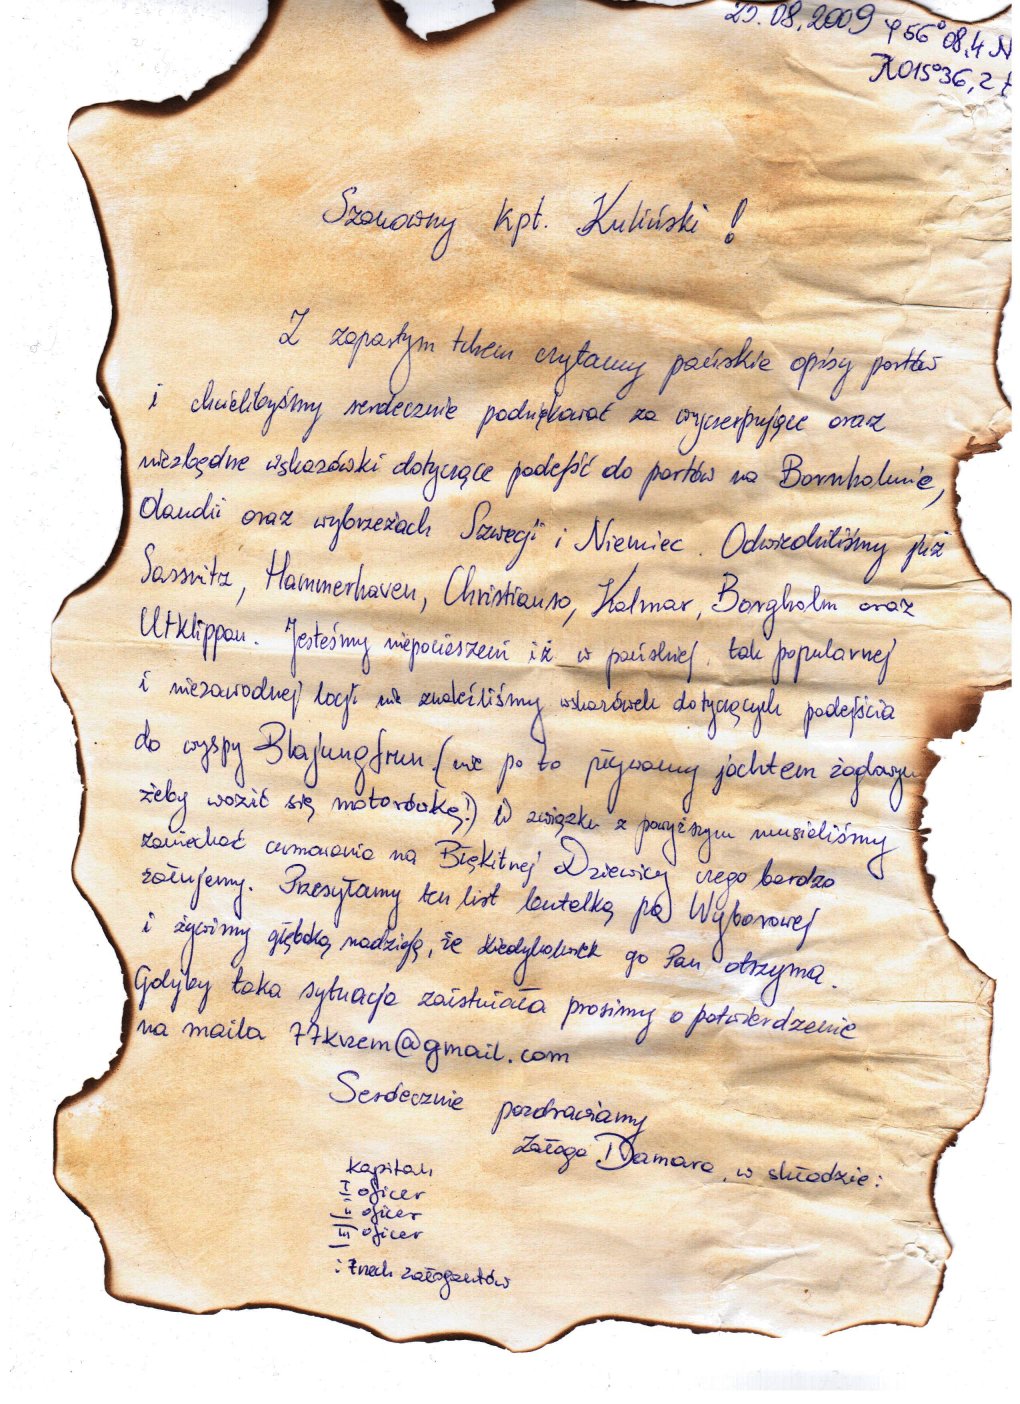 25.08.2009 φ56°08,4 N
λ015°36,2 E
Szanowny kpt. Kuliński!
Z zapartym tchem czytamy pańskie opisy portów
i chcielibyśmy serdecznie podziękować za wyczerpujące oraz
niezbędne wskazówki dotyczące podejść do portów na Bornholmie,
Olandii oraz wybrzeżach Szwecji i Niemiec. Odwiedziliśmy już
Sassnitz, Hammerhaven, Christianso, Kalmar, Borgholm oraz
Utklippan. Jesteśmy niepocieszeni iż w pańskiej, tak popularnej
i niezawodnej locji nie znaleźliśmy wskazówek dotyczących podejścia
do wyspy Blajungfrun (nie po to pływamy jachtem żaglowym
żeby wozić się motorówką!) W związku z powyższym musieliśmy
zaniechać cumowania na Błękitnej Dziewicy czego bardzo
żałujemy. Przesyłamy ten list butelką po Wyborowej
i żywimy głęboką nadzieję, że kiedykolwiek go Pan otrzyma.
Gdyby taka sytuacja zaistniała prosimy o potwierdzenie
na maila 77krzem@gmail.com
Serdecznie pozdrawiamy
Załoga Damara, w składzie:
Kapitan
I oficer
II oficer
III oficer
i 7miu załogantów